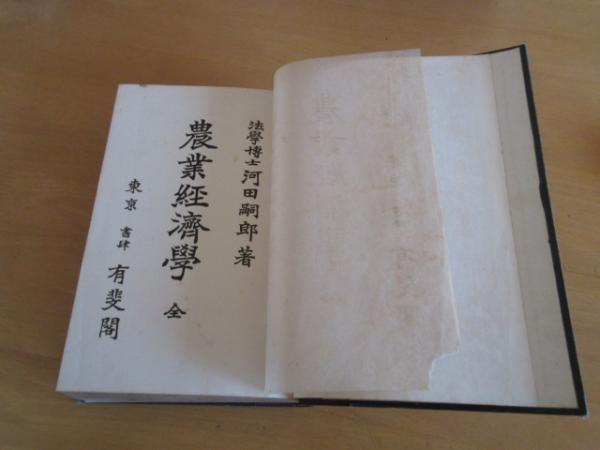 法學博士河田嗣郎著
農業經濟學 全
東京 書肆 有斐閣